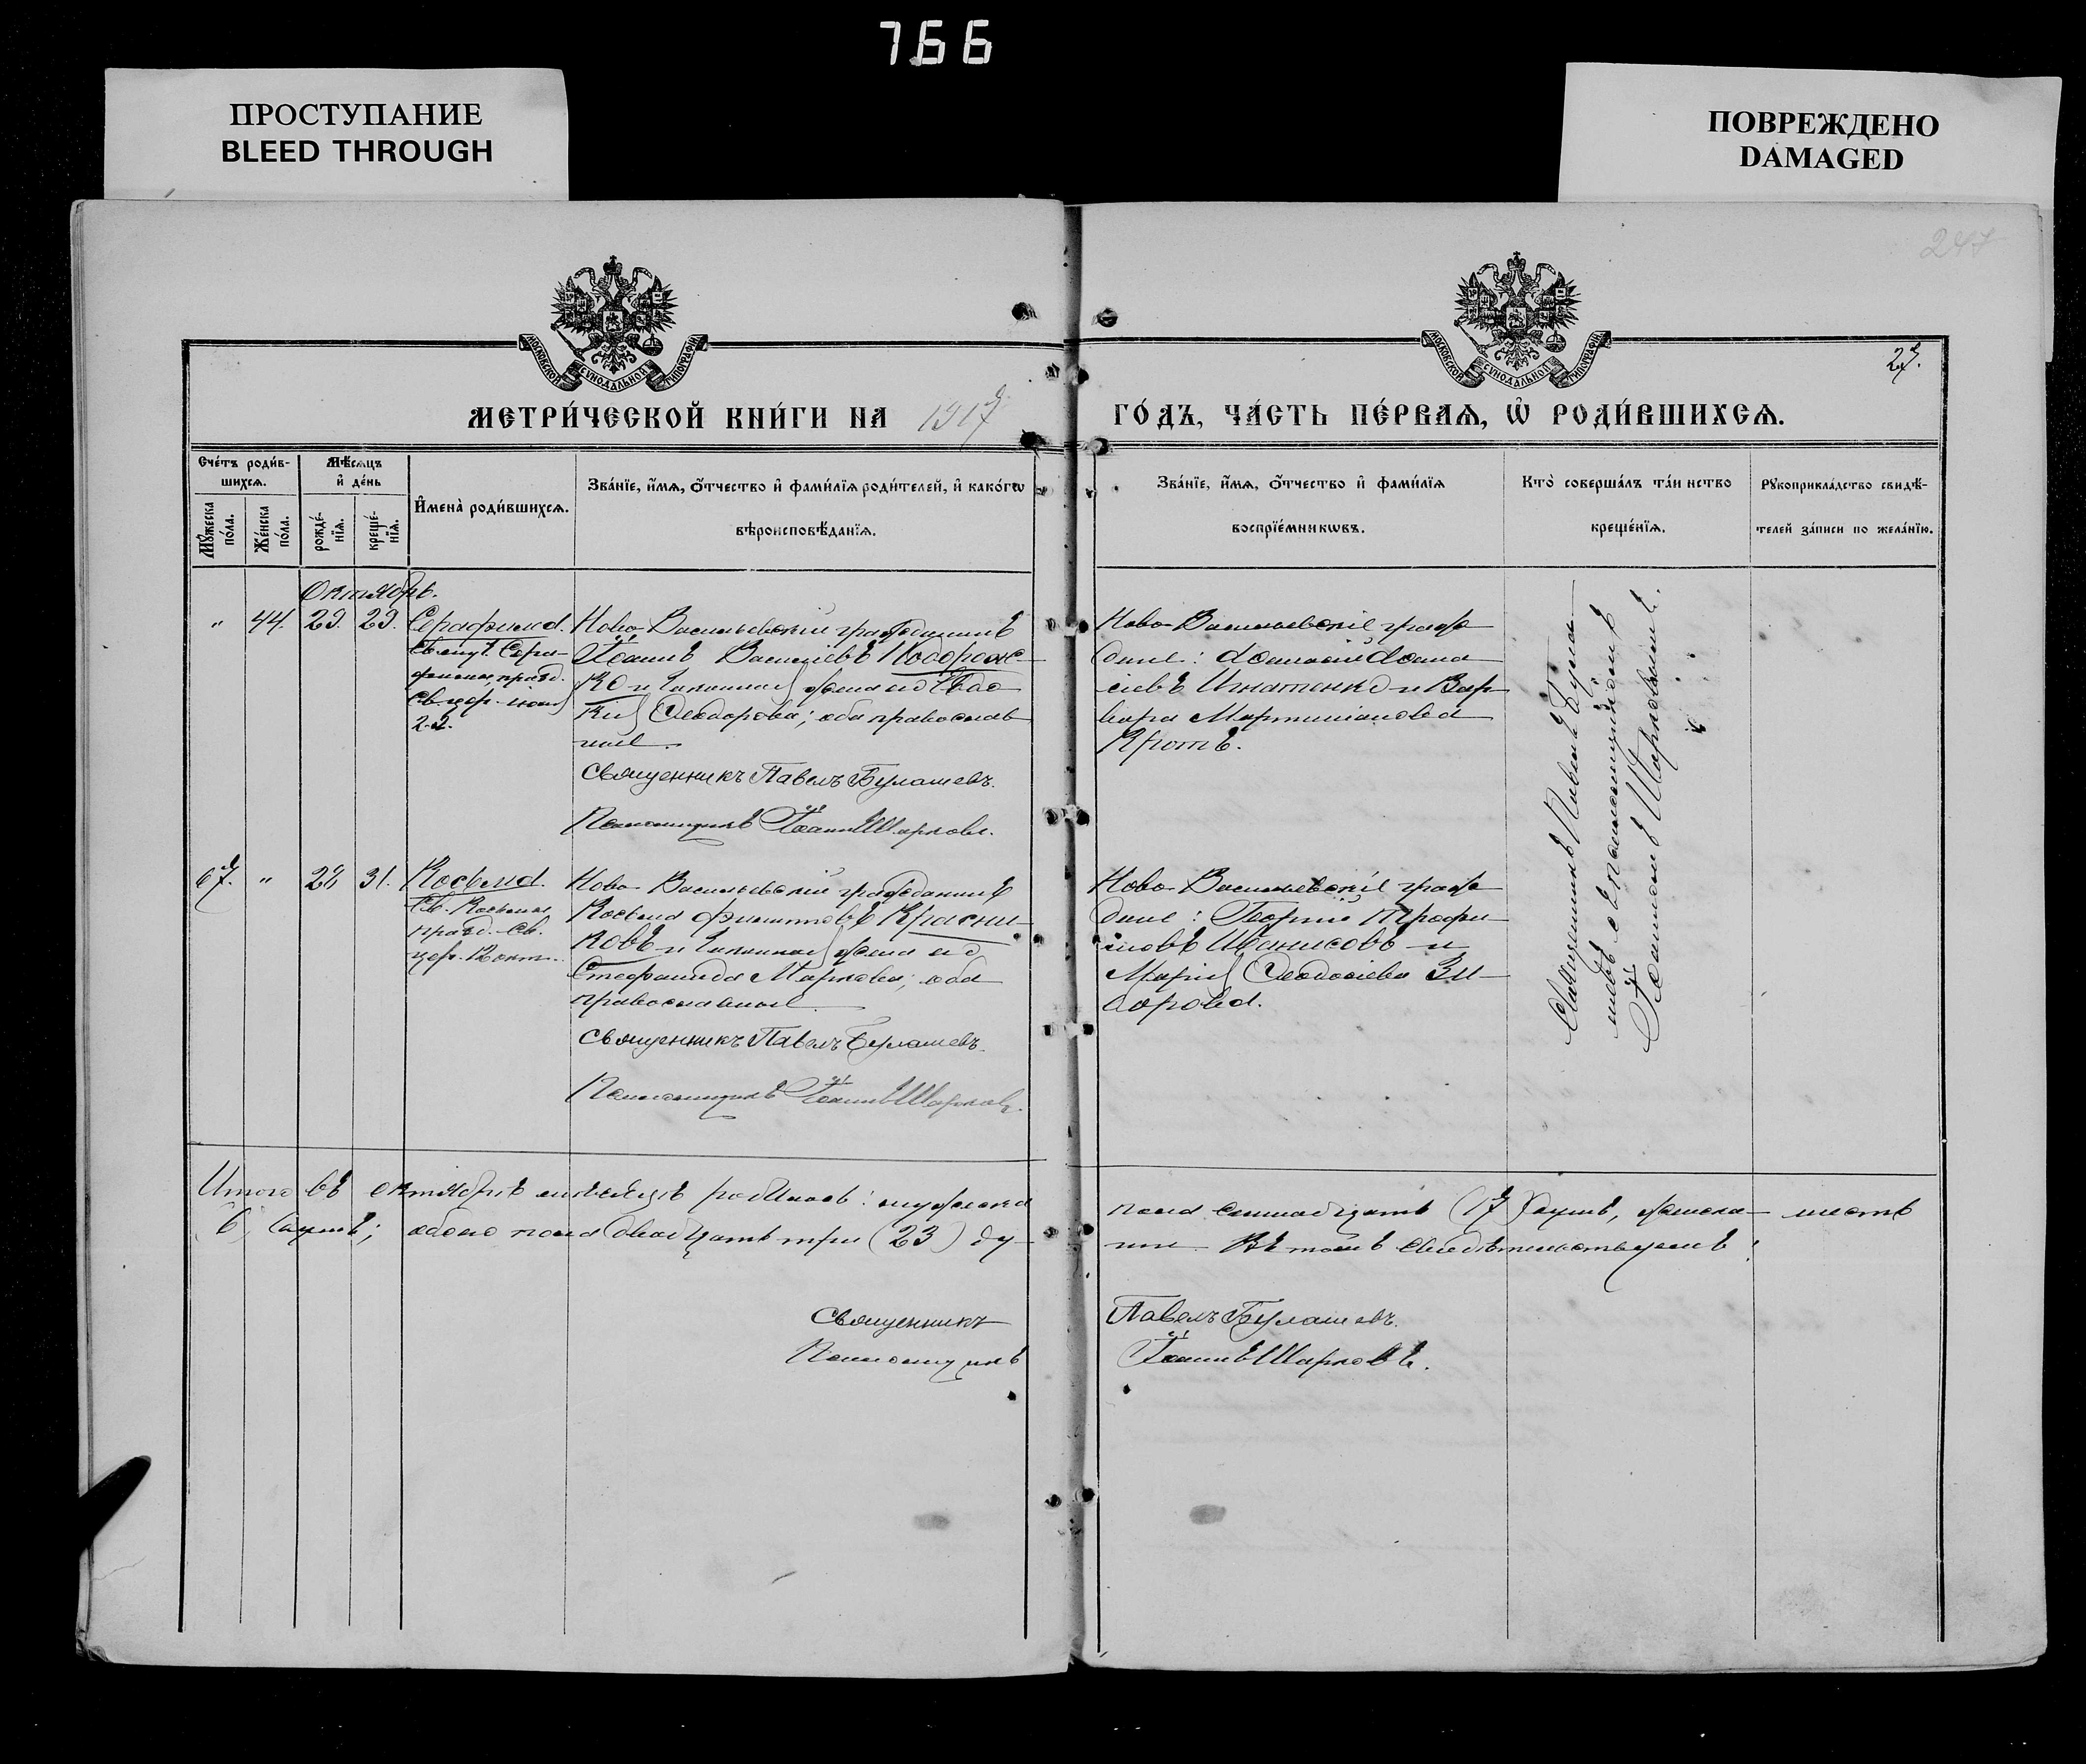 766
ПРОСТУПАНИЕ
BLEED THROUGH
ПОВРЕЖДЕНО
DAMAGED
247
27.
МОСКОВСКОЙ СѴНОДАЛЬНОЙ ТИПОГРАФІИ
МОСКОВСКОЙ СѴНОДАЛЬНОЙ ТИПОГРАФІИ
МЕТРИ́ЧЕСКОЙ КНИ́ГИ НА 1917
ГО́ДЪ, ЧА́СТЬ ПЕ́РВАЯ, Ѡ РОДИ́ВШИХСЯ.
Сче́тъ роди́в-
шихся.
Му́жеска по́ла.
Же́нска по́ла.
Мѣ́сяцъ
и де́нь
рожде́-
нія.
креще́-
нія.
Имена̀ роди́вшихся.
Зва́ніе, и́мя, о́тчество и фами́лія роди́телей, и како́гѡ
вѣроисповѣ́данія.
Зва́ніе, и́мя, о́тчество и фами́лія
воспріе́мникѡвъ.
Кто̀ соверша́лъ та́инство
креще́нія.
Рукоприкла́дство свидѣ́-
телей за́писи по жела́нію.
Октябрь.
" 44. 29. 29. Серафима.
Св. муч. Сера-
фимы, празд.
Св. цер. іюля
29.
Ново-Васильевскій гражданинъ
Іоаннъ Васильевъ Подорож-
ко и законная жена его Евдо-
кія Ѳеодорова; оба православ-
ные.
Священникъ Павелъ Булашевъ.
Псаломщикъ Іоаннъ Шарковъ.
Ново-Васильевскіе граж-
дане: Аѳанасій Аѳана-
сіевъ Игнатенко и Вар-
вара Мартиніанова
Кротъ.
Священникъ Павелъ Була-
шевъ съ псаломщикомъ
Іоанномъ Шарковымъ.
67. " 28 31. Косьма.
Св. Косьмы,
празд. Св.
цер. 12 окт.
Ново-Васильевскій гражданинъ
Косьма Филипповъ Красни-
ковъ и законная жена его
Стефанида Маркова; оба
православные.
Священникъ Павелъ Булашевъ.
Псаломщикъ Іоаннъ Шарковъ.
Ново-Васильевскіе граж-
дане: Георгій Трофи-
мовъ Иванисовъ и
Марія Ѳеодосіева Зи-
дорова.
Итого въ октябрѣ мѣсяцѣ родилось: мужеска
пола семнадцать (17) душъ, женска — шесть
6, душъ; обоего пола двадцать три (23) ду-
ши. Въ томъ свидѣтельствуемъ:
Священникъ Павелъ Булашевъ.
Псаломщикъ Іоаннъ Шарковъ.